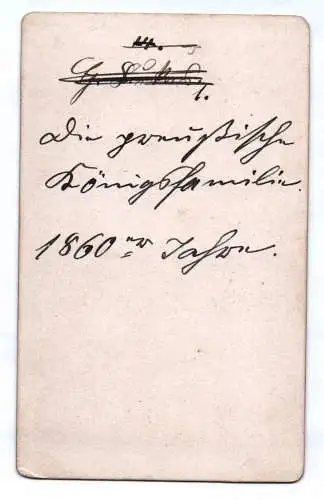 Die preußische
Königsfamilie.
1860er Jahre.